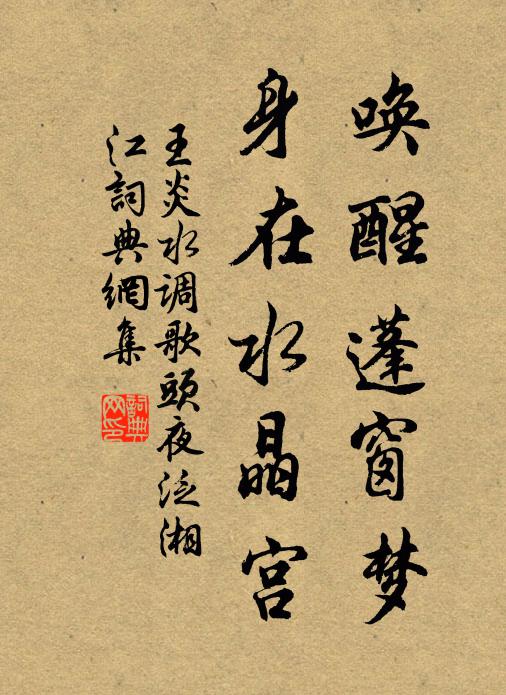 唤醒蓬窗梦
身在水晶宫
王炎水调歌頭夜泛湘
江詞典網集
詞典
网印